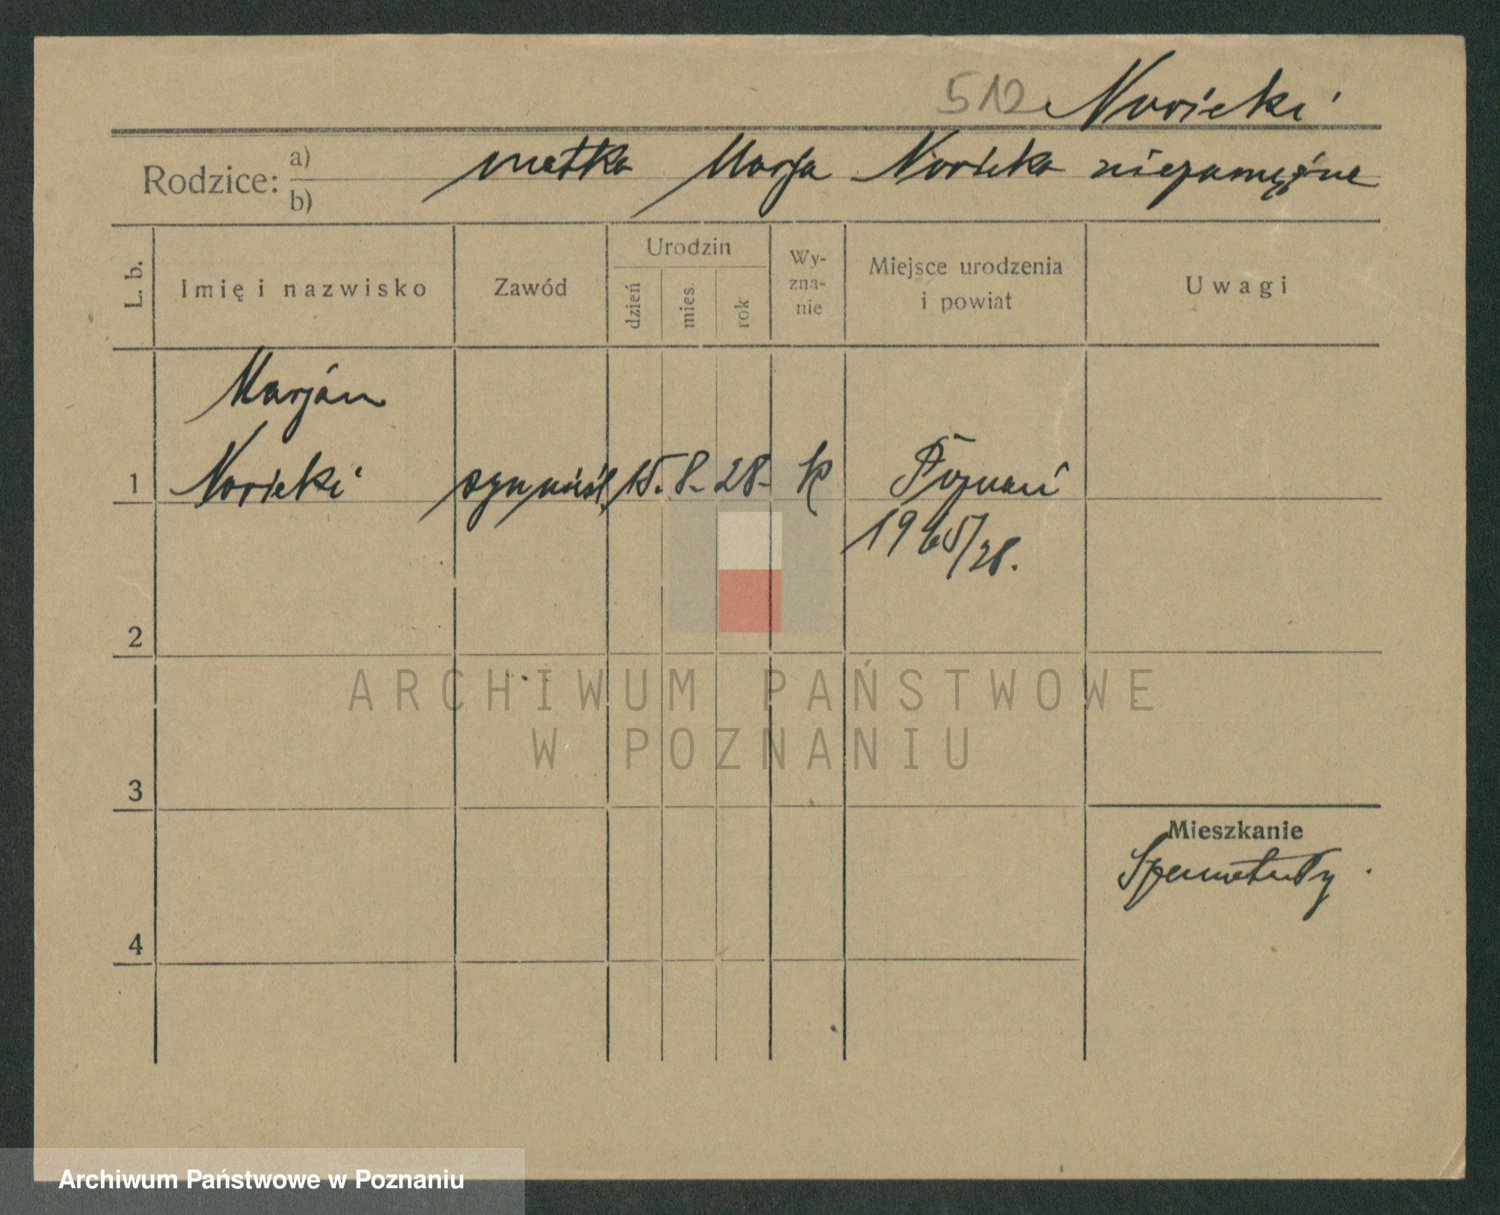 512 Noricki
Rodzice: a) b) matka Marja Noricka niezamężna
L. b. Imię i nazwisko Zawód Urodzin dzień mies. rok Wy-zna-nie Miejsce urodzenia i powiat Uwagi
Marjan
1 Noricki syn nieśl. 15. 8. 28. k Poznań
1965/28.
2
ARCHIWUM PAŃSTWOWE
W POZNANIU
3
Mieszkanie
4
Archiwum Państwowe w Poznaniu